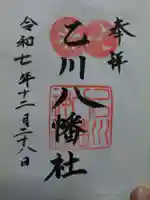 奉拝
乙川八幡社
令和七年十二月二十八日